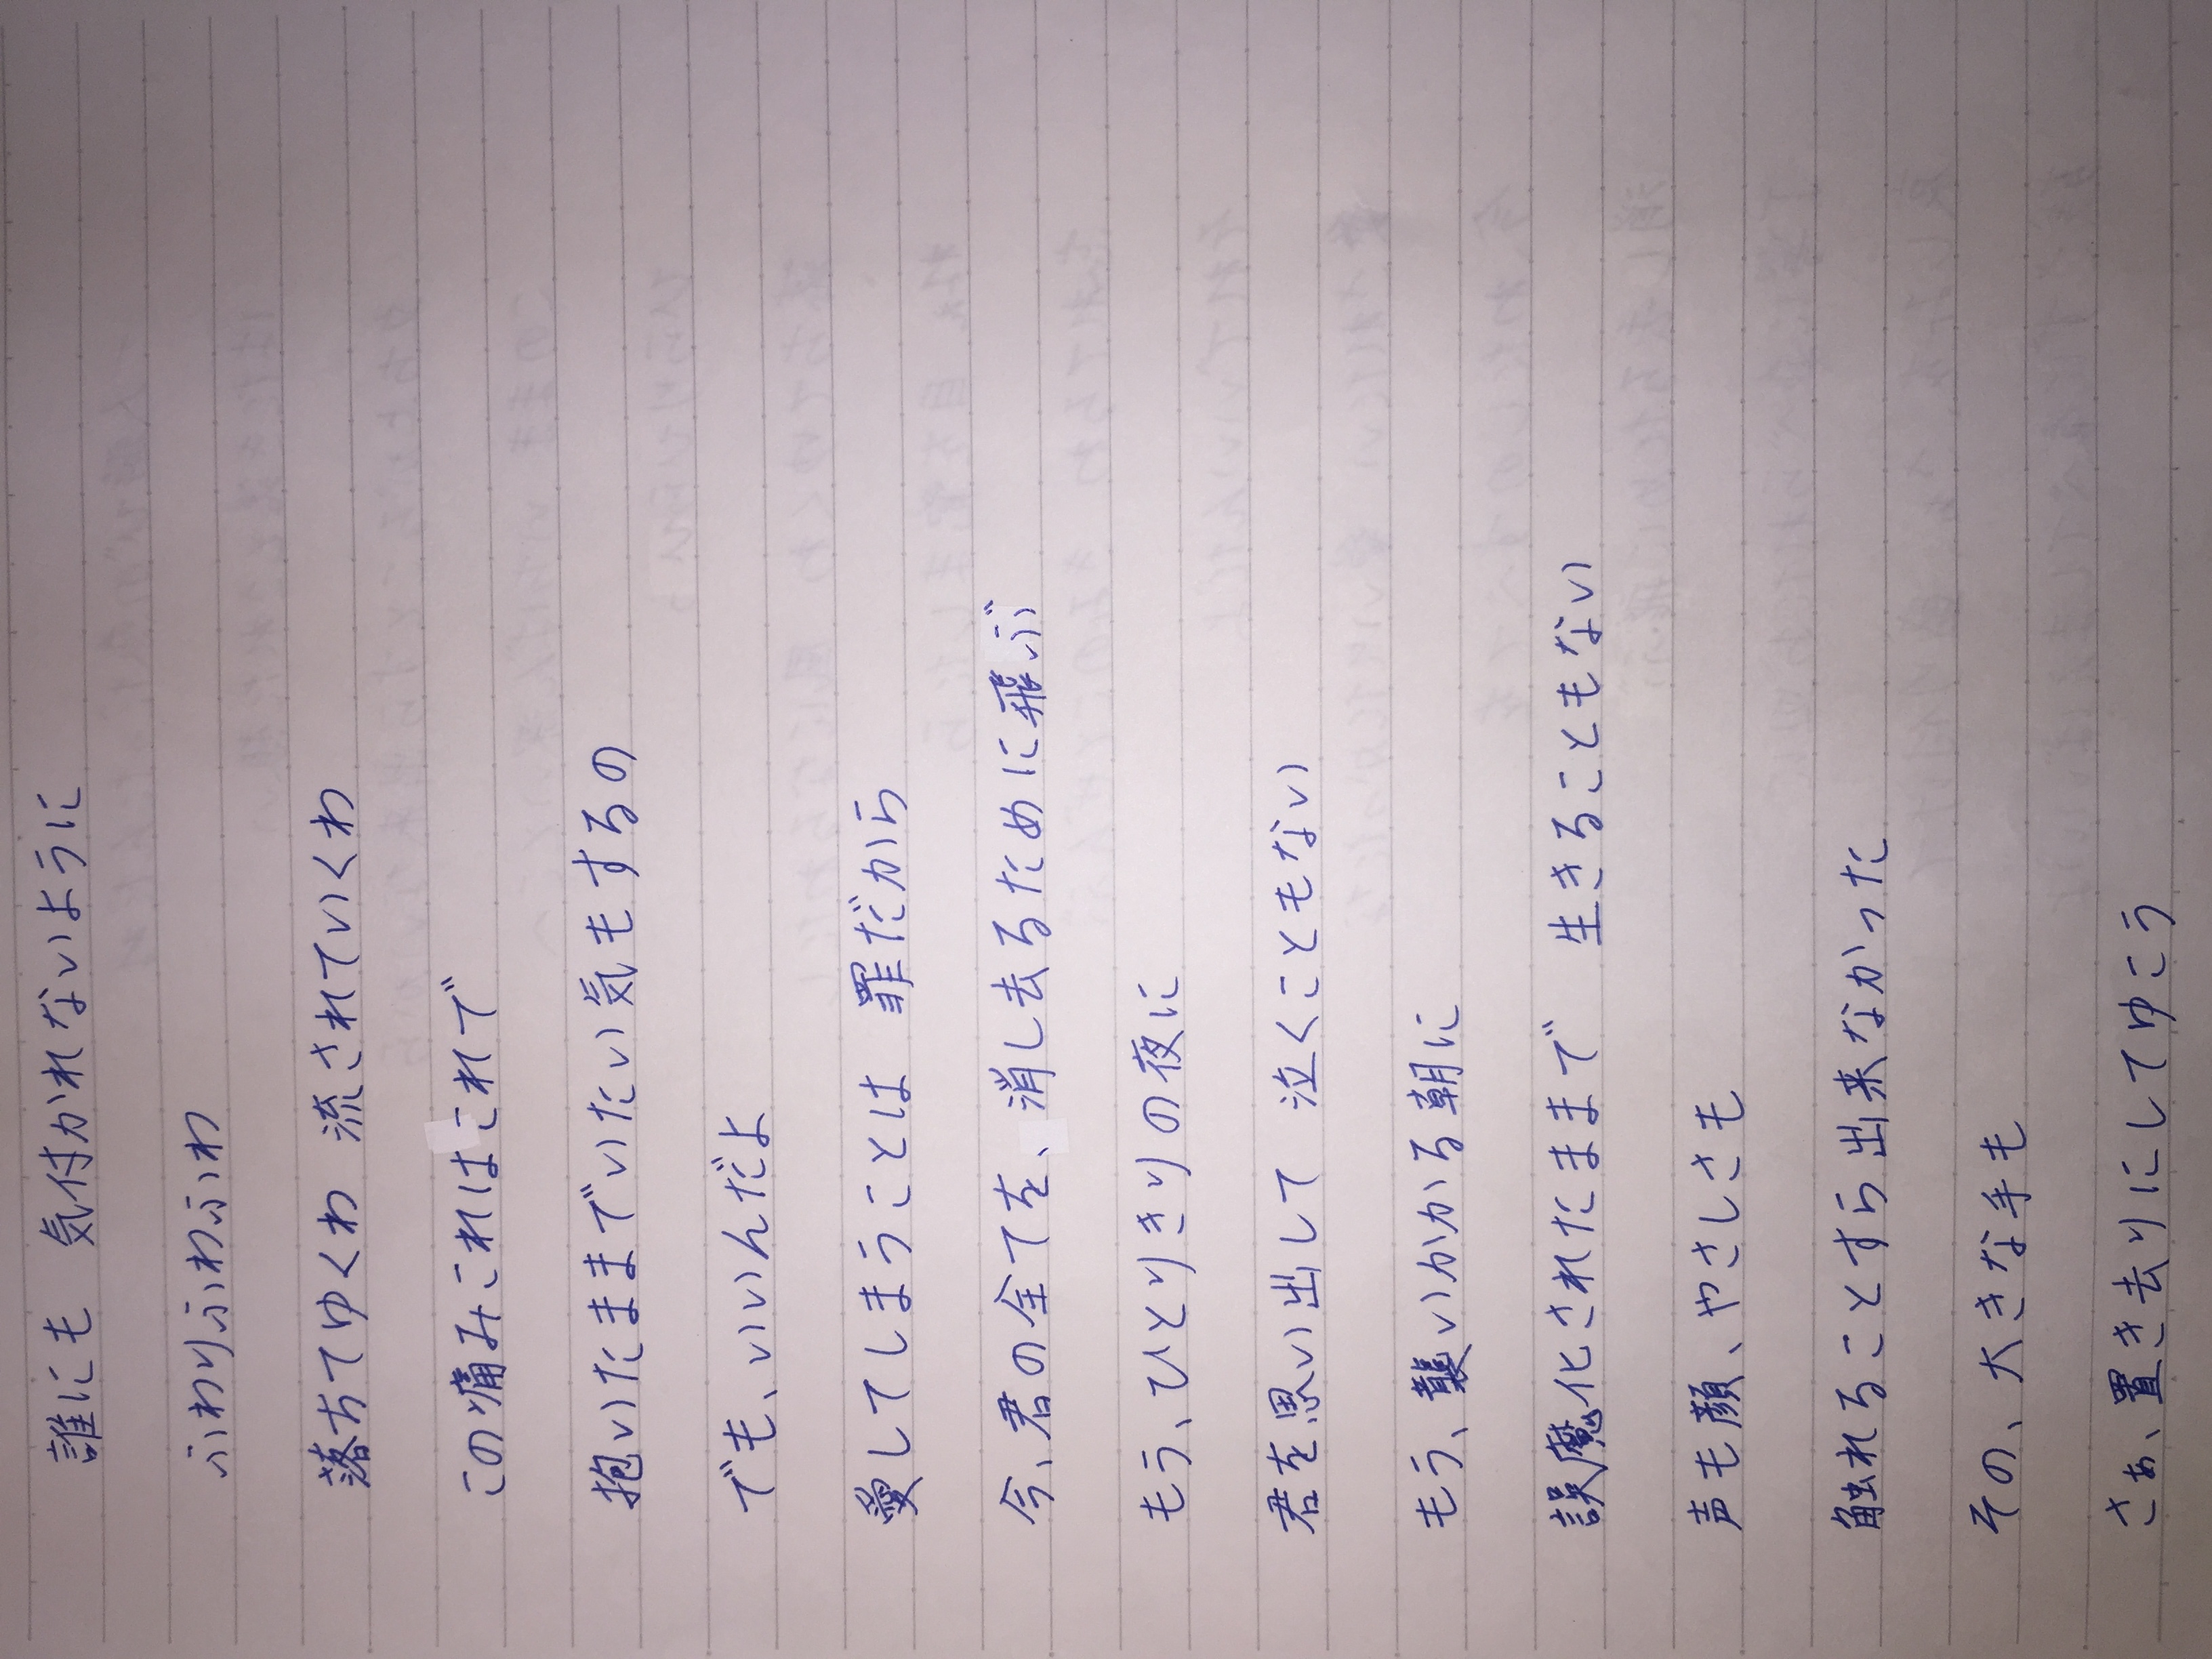 誰にも　気付かれないように
ふわりふわふわ
落ちてゆくわ　流されていくわ
この痛みこれはこれで
抱いたままでいたい気もするの
でも、いいんだよ
愛してしまうことは　罪だから
今、君の全てを、消し去るために飛ぶ
もう、ひとりきりの夜に
君を思い出して　泣くこともない
もう、襲いかかる朝に
誤魔化されたままで　生きることもない
声も顔、やさしさも
触れることすら出来なかった
その、大きな手も
さぁ、置き去りにしてゆこう